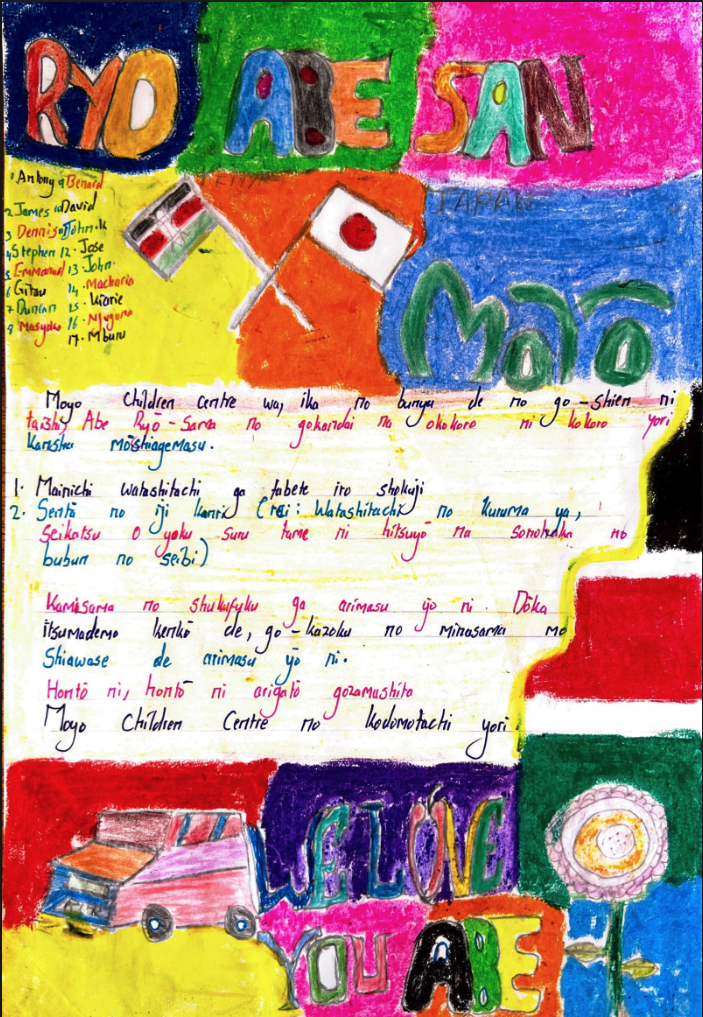 RYO ABE SAN
JAPAN
1 Antony 9 Benard
2 James 10 David
3 Dennis 11 John.k
4 Stephen 12. Jose
5 Emmanuel 13. John
6 Gitau 14. Macharia
7 Duncan 15. Kiarie
8 16. Njuguna
17. Mburu
MOYO
Moyo Children Centre wa, ika no bunya de no go-shien ni
taishi Abe Ryō-Sama no gokandai na okokoro ni kokoro yori
Kansha mōshiagemasu.
1. Mainichi watashitachi ga tabete iro shokuji
2. Sentā no iji kanri (rei: Watashitachi no kuruma ya,
seikatsu o yoku suru tame ni hitsuyō na sonohoka no
bubun no seibi)
Kamisama no shukufuku ga arimasu yō ni. Dōka
itsumademo kenkō de, go-kazoku no minasama mo
Shiawase de arimasu yō ni.
Hontō ni, hontō ni arigatō gozamushita
Moyo Children Centre no kodomotachi yori.
WE LOVE
YOU ABE